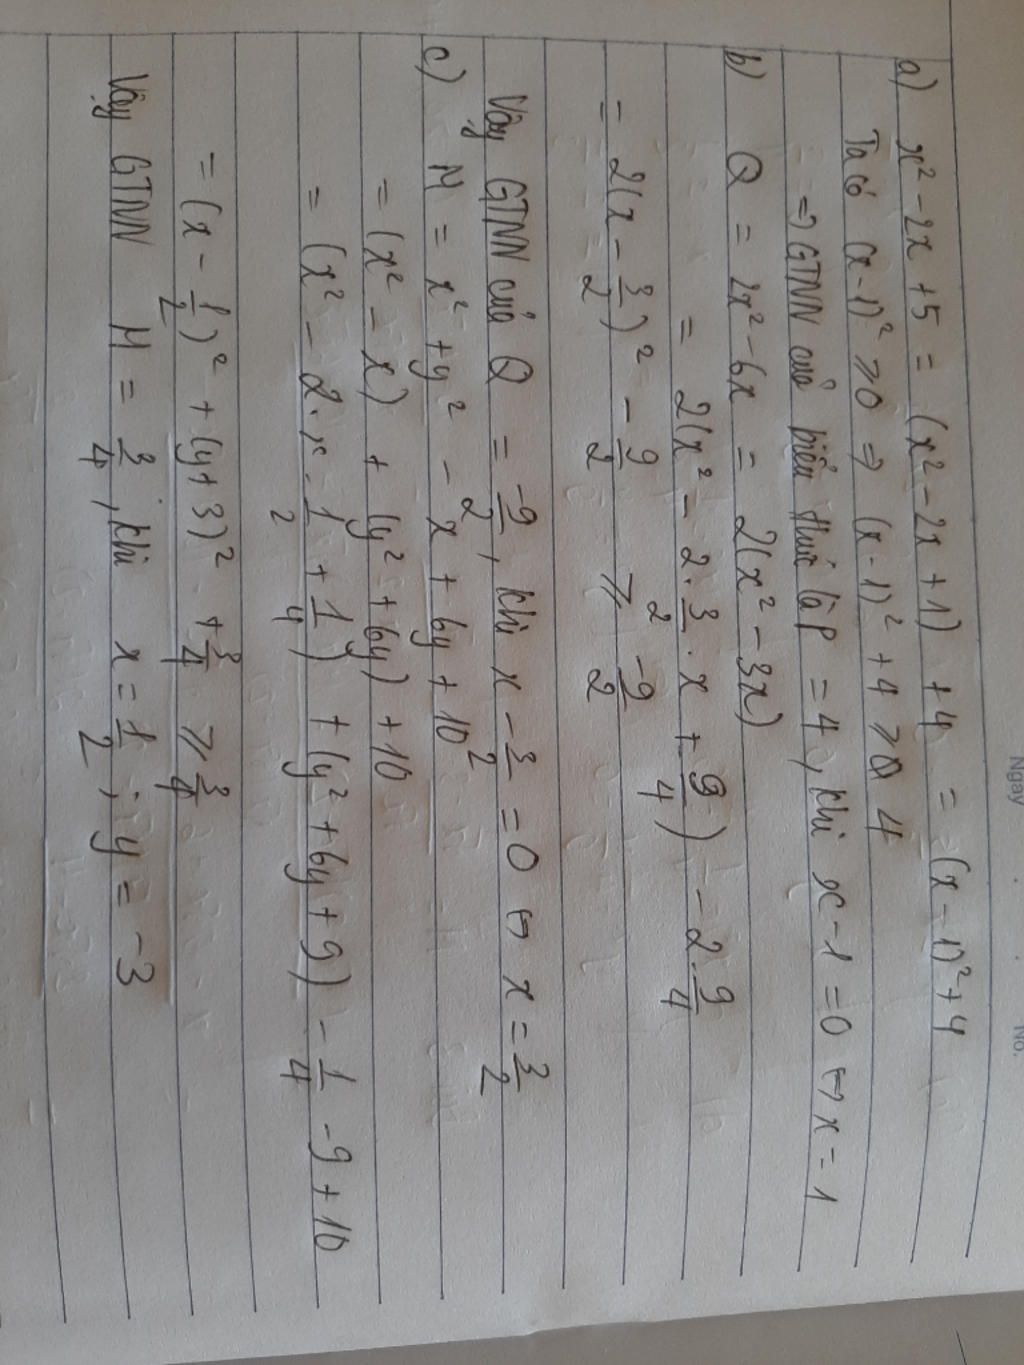 Ngày
No.
a) x² - 2x + 5 = (x² - 2x + 1) + 4 = (x - 1)² + 4
Ta có (x - 1)² ≥ 0 ⇒ (x - 1)² + 4 ≥ 4
⇒ GTNN của biểu thức là P = 4, khi x - 1 = 0 ↔ x = 1
b) Q = 2x² - 6x = 2(x² - 3x)
= 2(x² - 2 . 3/2 . x + 9/4) - 2 . 9/4
= 2(x - 3/2)² - 9/2 ≥ -9/2
Vậy GTNN của Q = -9/2, khi x - 3/2 = 0 ↔ x = 3/2
c) M = x² + y² - x + 6y + 10
= (x² - x) + (y² + 6y) + 10
= (x² - 2 . x . 1/2 + 1/4) + (y² + 6y + 9) - 1/4 - 9 + 10
= (x - 1/2)² + (y + 3)² + 3/4 ≥ 3/4
Vậy GTNN M = 3/4, khi x = 1/2 ; y = -3